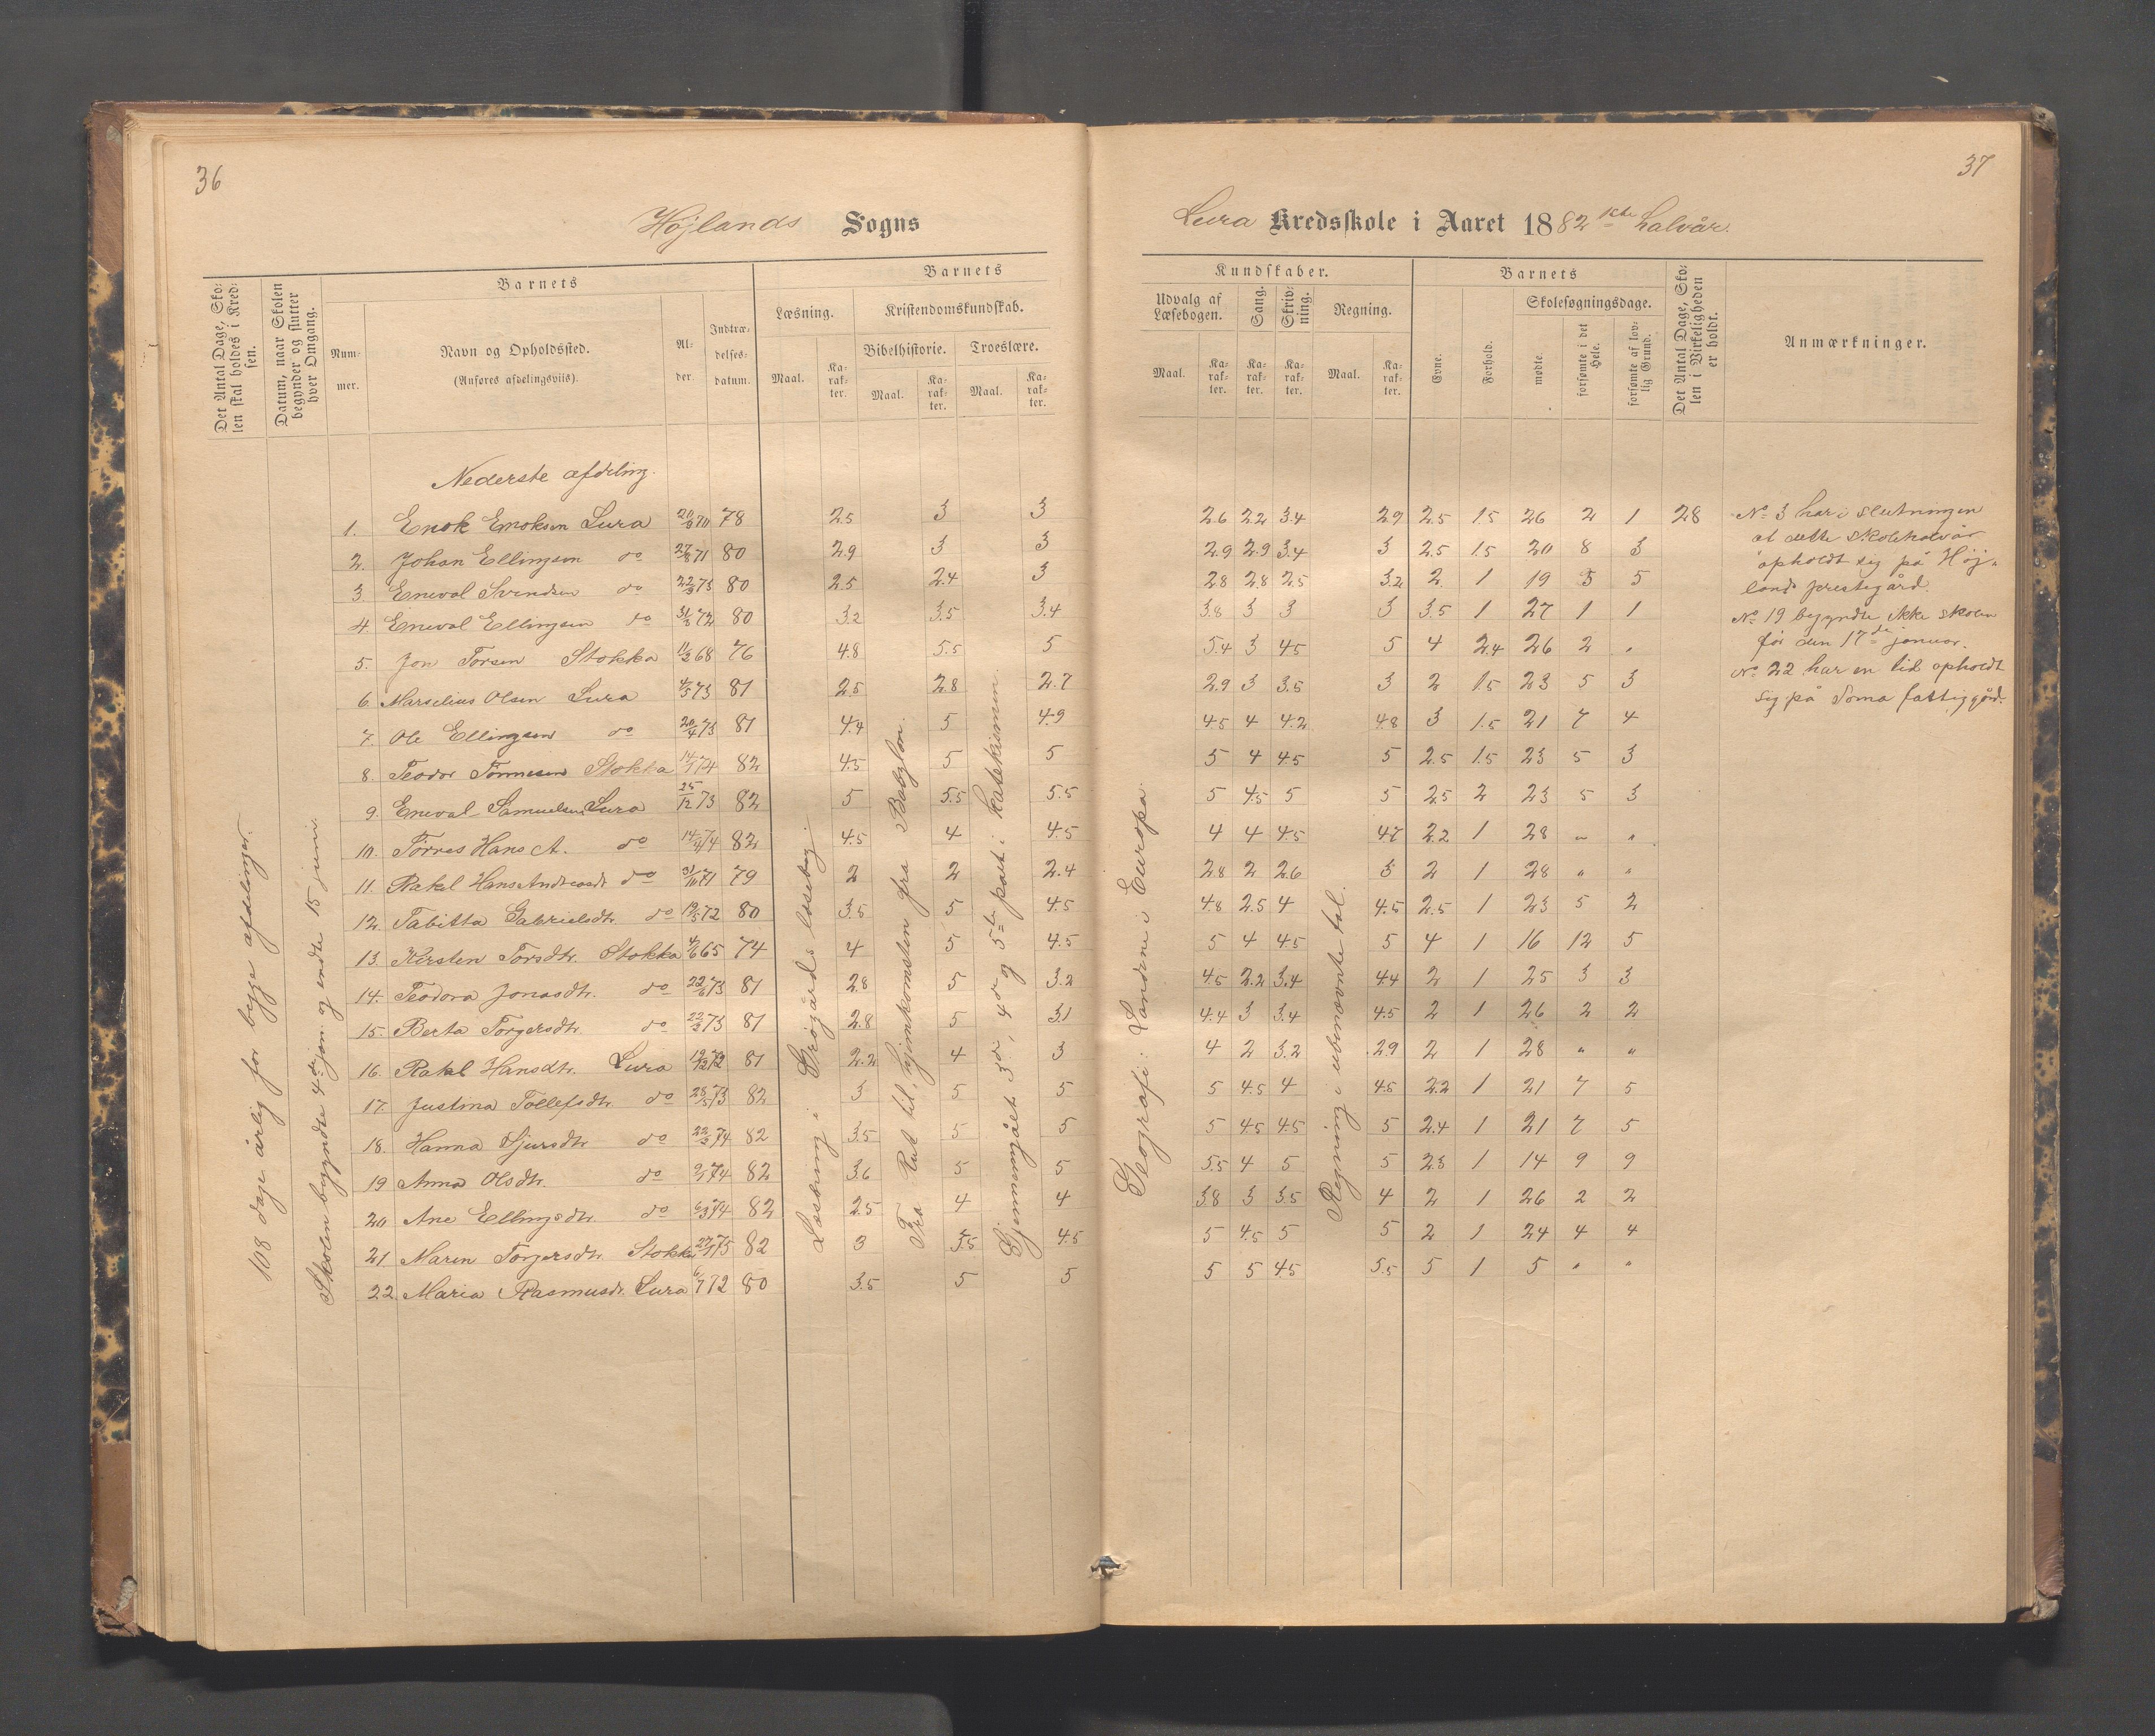 36
Højlands Sogns
Det Antal Dage, Skolen skal holdes i Kredsen.
Datum, naar Skolen begynder og slutter hver Omgang.
Barnets
Nummer.
Navn og Opholdssted.
(Anføres afdelingsviis).
Alder.
Indtrædelsesdatum.
Barnets
Læsning.
Kristendomskundskab.
Bibelhistorie.
Troeslære.
Maal.
Karakter.
Maal.
Karakter.
Maal.
Karakter.
108 dage årlig for begge afdelinger.
Skolen begyndte 4de jan. og endte 15 juni.
Læsning i Grøgårds læsebog.
Fra Rut til hjemkomsten fra Babylon.
Gjennemgået 3de, 4de og 5te part i Katekismen.
Nederste afdeling.
1. Enok Enoksen Lura 20/9 70 78 2.5 3 3
2. Johan Ellingsen do 27/8 71 80 2.9 3 3
3. Eneval Svendsen do 22/3 73 80 2.5 2.4 3
4. Eneval Ellingsen do 31/5 72 80 3.2 3.5 3.4
5. Jon Torsen Stokka 11/2 68 76 4.8 5.5 5
6. Marselius Olsen Lura 4/5 73 81 2.5 2.8 2.7
7. Ole Ellingsen do 20/4 73 81 4.4 5 4.9
8. Teodor Tønnesen Stokka 14/1 74 82 4.5 5 5
9. Eneval Samuelsen Lura 25/12 73 82 5 5.5 5.5
10. Tørres Hans A. do 14/4 74 82 4.5 4 4.5
11. Rakel Hans Andreasdt do 31/10 71 79 2 2 2.4
12. Tabitta Gabrielsdtr. do 19/5 72 80 3.5 5 4.5
13. Kirsten Torsdtr. Stokka 4/6 65 74 4 5 4.5
14. Teodora Jonasdtr. do 22/6 73 81 2.8 5 3.2
15. Berta Torgersdtr. do 22/3 73 81 2.8 5 3.1
16. Rakel Hansdtr. Lura 19/12 72 81 2.2 4 3
17. Justina Tollefsdtr. do 25/5 73 82 3 5 5
18. Hanna Sjursdtr do 22/3 74 82 3.5 5 5
19 Anna Olsdtr. do 2/1 74 82 3.6 5 5
20 Ane Ellingsdtr. do 6/3 74 82 2.5 4 4
21. Maren Torgersdtr. Stokka 27/1 75 82 3 3.5 4.5
22. Maria Rasmusdt. Lura 6/7 72 80 3.5 5 5
37
Lura Kredsskole i Aaret 1882 1ste halvår.
Kundskaber.
Udvalg af Læsebogen.
Sang.
Skrivning.
Regning.
Maal.
Karakter.
Karakter.
Karakter.
Maal.
Karakter.
Barnets
Evne.
Forhold.
Skolesøgningsdage.
mødte.
forsømte i det Hele.
forsømte af lovlig Grund.
Det Antal Dage, Skolen i Virkeligheden er holdt.
Anmærkninger.
Geografi: Landene i Europa.
Regning i ubenævnte tal.
2.6 2.2 3.4 2.9 2.5 1.5 26 2 1 28
2.9 2.9 3.4 3 2.5 1.5 20 8 3
2.8 2.8 2.5 3.2 2 1 19 5 5
3.8 3 3 3 3.5 1 27 1 1
5.4 3 4.5 5 4 2.4 26 2 "
2.9 3 3.5 3 2 1.5 23 5 3
4.5 4 4.2 4.8 3 1.5 21 7 4
5 4 4.5 5 2.5 1.5 23 5 3
5 4.5 5 5 2.5 2 23 5 3
4 4 4.5 4.7 2.2 1 28 " "
2.8 2 2.6 3 2 1 28 " "
4.8 2.5 4 4.5 2.5 1 23 5 2
5 4 4.5 5 4 1 16 12 5
4.5 2.2 3.4 4.4 2 1 25 3 3
4.4 3 3.4 4.5 2 1 26 2 2
4 2 3.2 2.9 2 1 28 " "
5 4.5 4 4.5 2.2 1 21 7 5
5 4.5 4.5 5 2.4 1 21 7 5
5.5 4 5 5 2.3 1 14 9 9
3.8 3 3.5 4 2 1 26 2 2
5 4.5 5 5 2 1 24 4 4
5 5 4.5 5.5 5 1 5 " "
No 3 har i slutningen
at dette skolehalvår
opholdt sig på Høj-
lands prestegård.
No 19 begyndte ikke skolen
før den 17de januar.
No 22 har en tid opholdt
sig på Soma fattiggård.